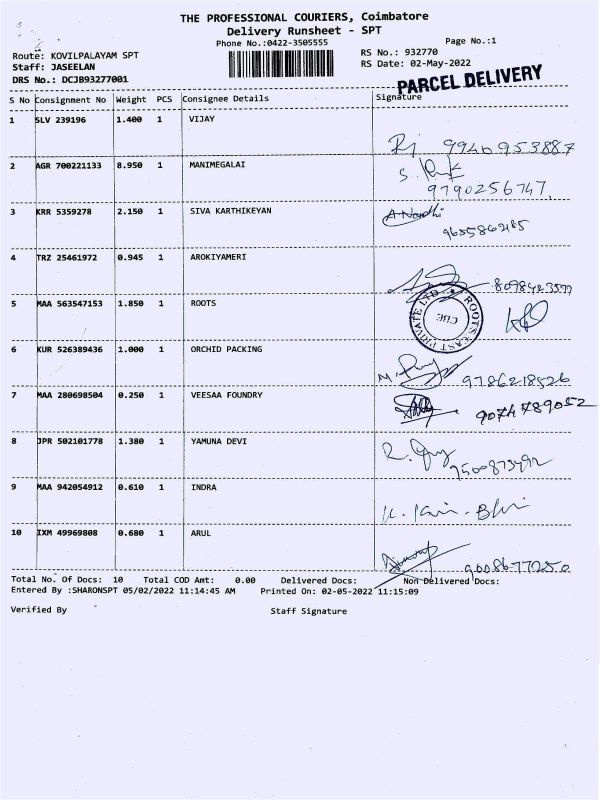 THE PROFESSIONAL COURIERS, Coimbatore
Delivery Runsheet - SPT
Phone No.:0422-3505555
Page No.:1
Route: KOVILPALAYAM SPT
RS No.: 932770
Staff: JASEELAN
RS Date: 02-May-2022
DRS No.: DCJB93277001
PARCEL DELIVERY
S No Consignment No Weight PCS Consignee Details Signature
1 SLV 239196 1.400 1 VIJAY
9940953887
2 AGR 700221133 8.950 1 MANIMEGALAI
9790256747,
3 KRR 5359278 2.150 1 SIVA KARTHIKEYAN
9655862185
4 TRZ 25461972 0.945 1 AROKIYAMERI
8098423577
5 MAA 563547153 1.850 1 ROOTS
ROOTS CAST PRIVATE LTD
CBE
6 KUR 526389436 1.000 1 ORCHID PACKING
9786218526
7 MAA 280698504 0.250 1 VEESAA FOUNDRY
9074789052
8 JPR 502101778 1.380 1 YAMUNA DEVI
9500873492
9 MAA 942054912 0.610 1 INDRA
10 IXM 49969808 0.680 1 ARUL
9008677250
Total No. Of Docs: 10 Total COD Amt: 0.00 Delivered Docs: Non Delivered Docs:
Entered By :SHARONSPT 05/02/2022 11:14:45 AM Printed On: 02-05-2022 11:15:09
Verified By Staff Signature